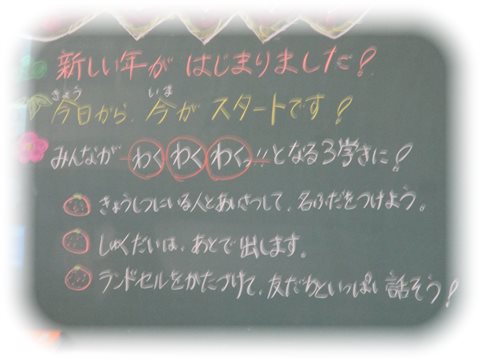 新しい年が はじまりました!
きょう いま
今日から、今が スタートです!
みんなが わく わく わくっ!! となる3学きに!
きょうしつにいる人とあいさつして、名ふだをつけよう。
しゅくだいは、あとで出します。
ランドセルをかたづけて、友だちといっぱい話そう!